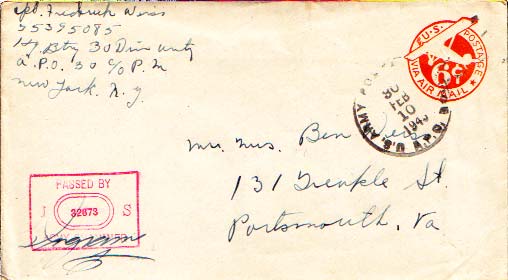 Cpl. Fredrick Weiss
35395085
Hq Btry 30 Div Arty
A.P.O. 30 c/o P.M
New York. N.y
U.S. POSTAGE
6¢
VIA AIR MAIL
U.S. ARMY POSTAL
FEB
10
1945
A.P.O.
Mr. Mrs. Ben Weiss
131 St.
Portsmouth, Va
PASSED BY
32673
S
ARMY EXAMINER